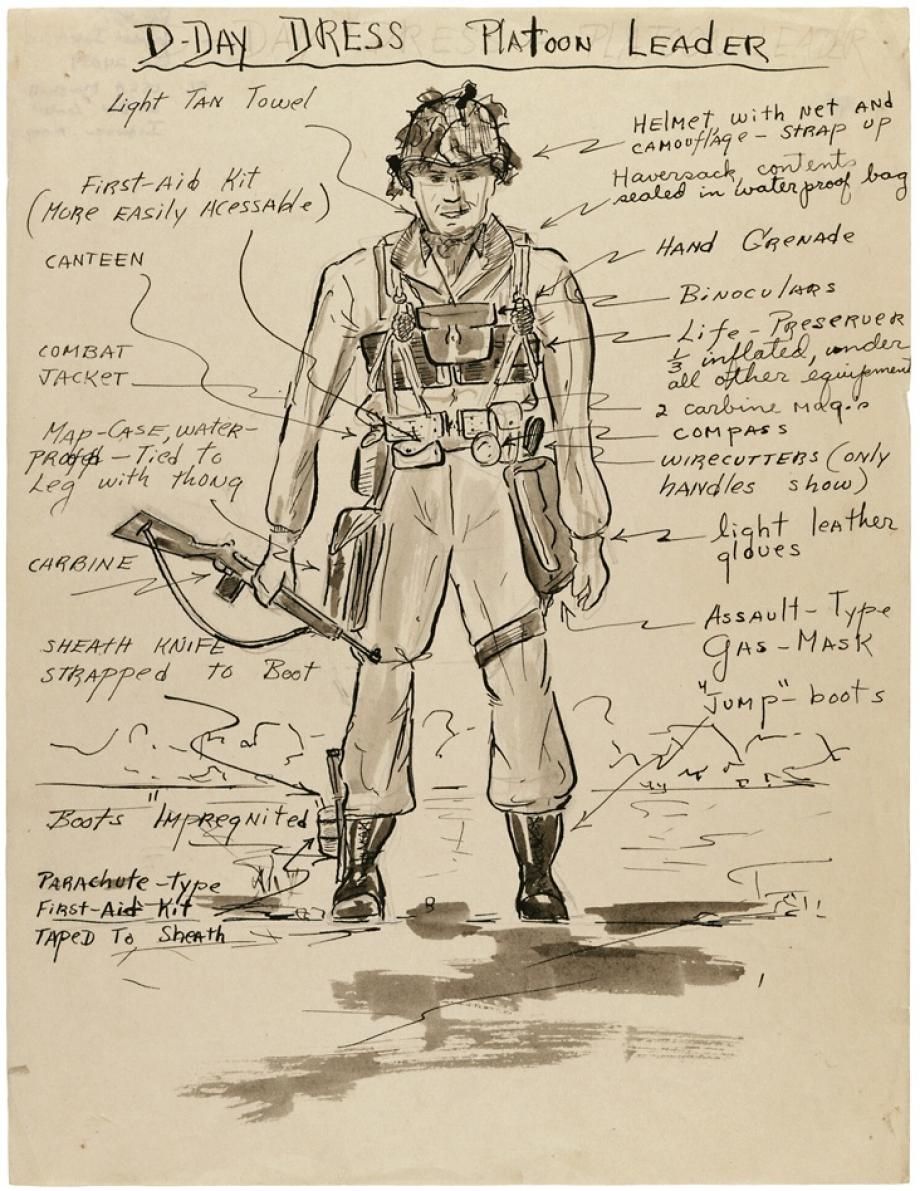 D-DAY DRESS PLATOON LEADER
Light TAN Towel
FIRST-Aid Kit
(MORE EASILY ACESSAble)
CANTEEN
COMBAT
JACKET
MAP-CASE, WATER-
PROOFED - Tied to
Leg with thong
CARBINE
SHEATH KNIFE
STRAPPED to Boot
Boots "IMPREGNITED"
PARAchute-Type
FIRST-Aid Kit
TAPED To Sheath
HELMET with NET AND
CAMOUflAge - STRAP UP
Haversack, contents
sealed in waterproof bag
HAND GRENADE
BiNOCULARS
Life-PRESERVER
1/3 inflated, under
all other equipement
2 carbine MAg.s
COMPASS
WIRECUTTERS (only
hANdLES show)
light leather
gloves
ASSAULT-Type
GAS-MASK
"JUMP"-boots